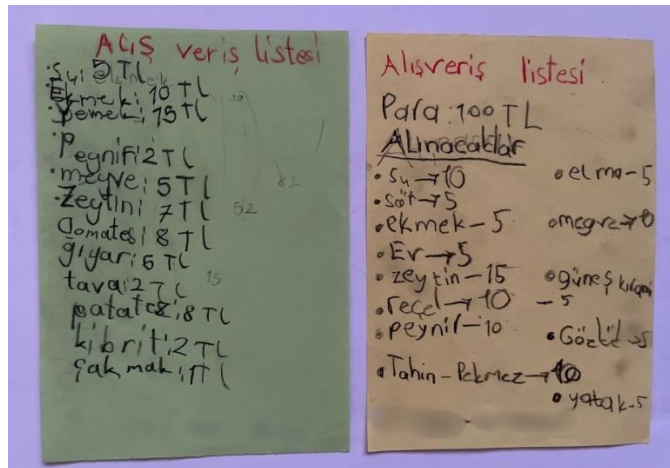 Alış veriş listesi
Su; 5 TL
Ekmek; 10 TL
Yemek; 15 TL
Peynir; 2 TL
meyve; 5 TL
Zeytin; 7 TL
Domates; 8 TL
tava; 2 TL
patates; 8 TL
kibrit; 2 TL
Çakmak; 1 TL
52
15
Alışveriş listesi
Para: 100 TL
Alınacaklar
• Su → 10
• süt → 5
• ekmek - 5
• Ev → 5
• zeytin - 15
• reçel → 10
• peynir - 10
• Tahin - Pekmez → 10
• elma - 5
• güneş kremi
- 5
• Gözlük → 5
• yatak - 5